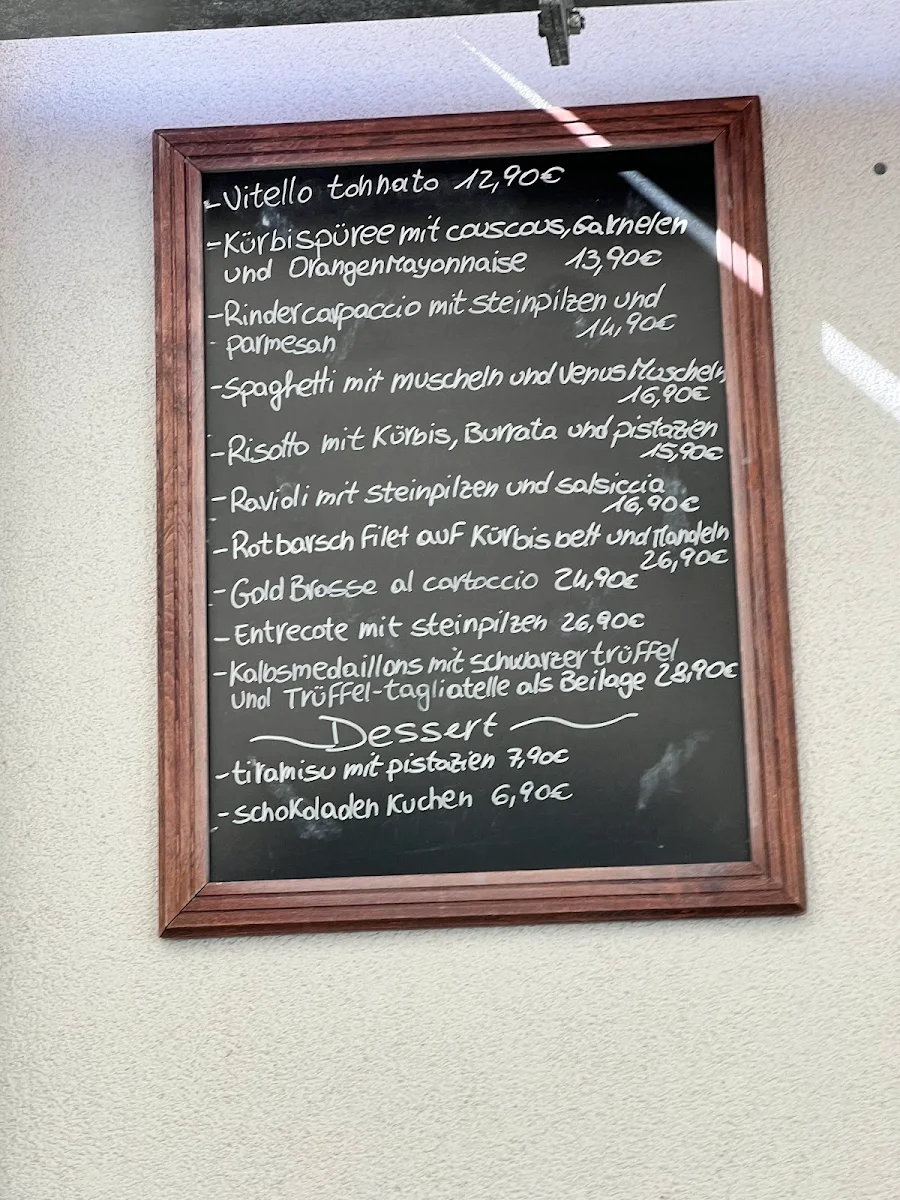 - Vitello tonnato 12,90€
- Kürbispüree mit couscous, Garnelen
und OrangenMayonnaise 13,90€
- Rindercarpaccio mit steinpilzen und
parmesan 14,90€
- spaghetti mit muscheln und Venus Muscheln
16,90€
- Risotto mit Kürbis, Burrata und pistazien
15,90€
- Ravioli mit steinpilzen und salsiccia
16,90€
- Rotbarsch Filet auf Kürbisbett und Mandeln
26,90€
- Gold Brasse al cartoccio 24,90€
- Entrecote mit steinpilzen 26,90€
- Kalbsmedaillons mit schwarzer trüffel
und Trüffel-tagliatelle als Beilage 28,90€
Dessert
- tiramisu mit pistazien 7,90€
- schokoladen Kuchen 6,90€